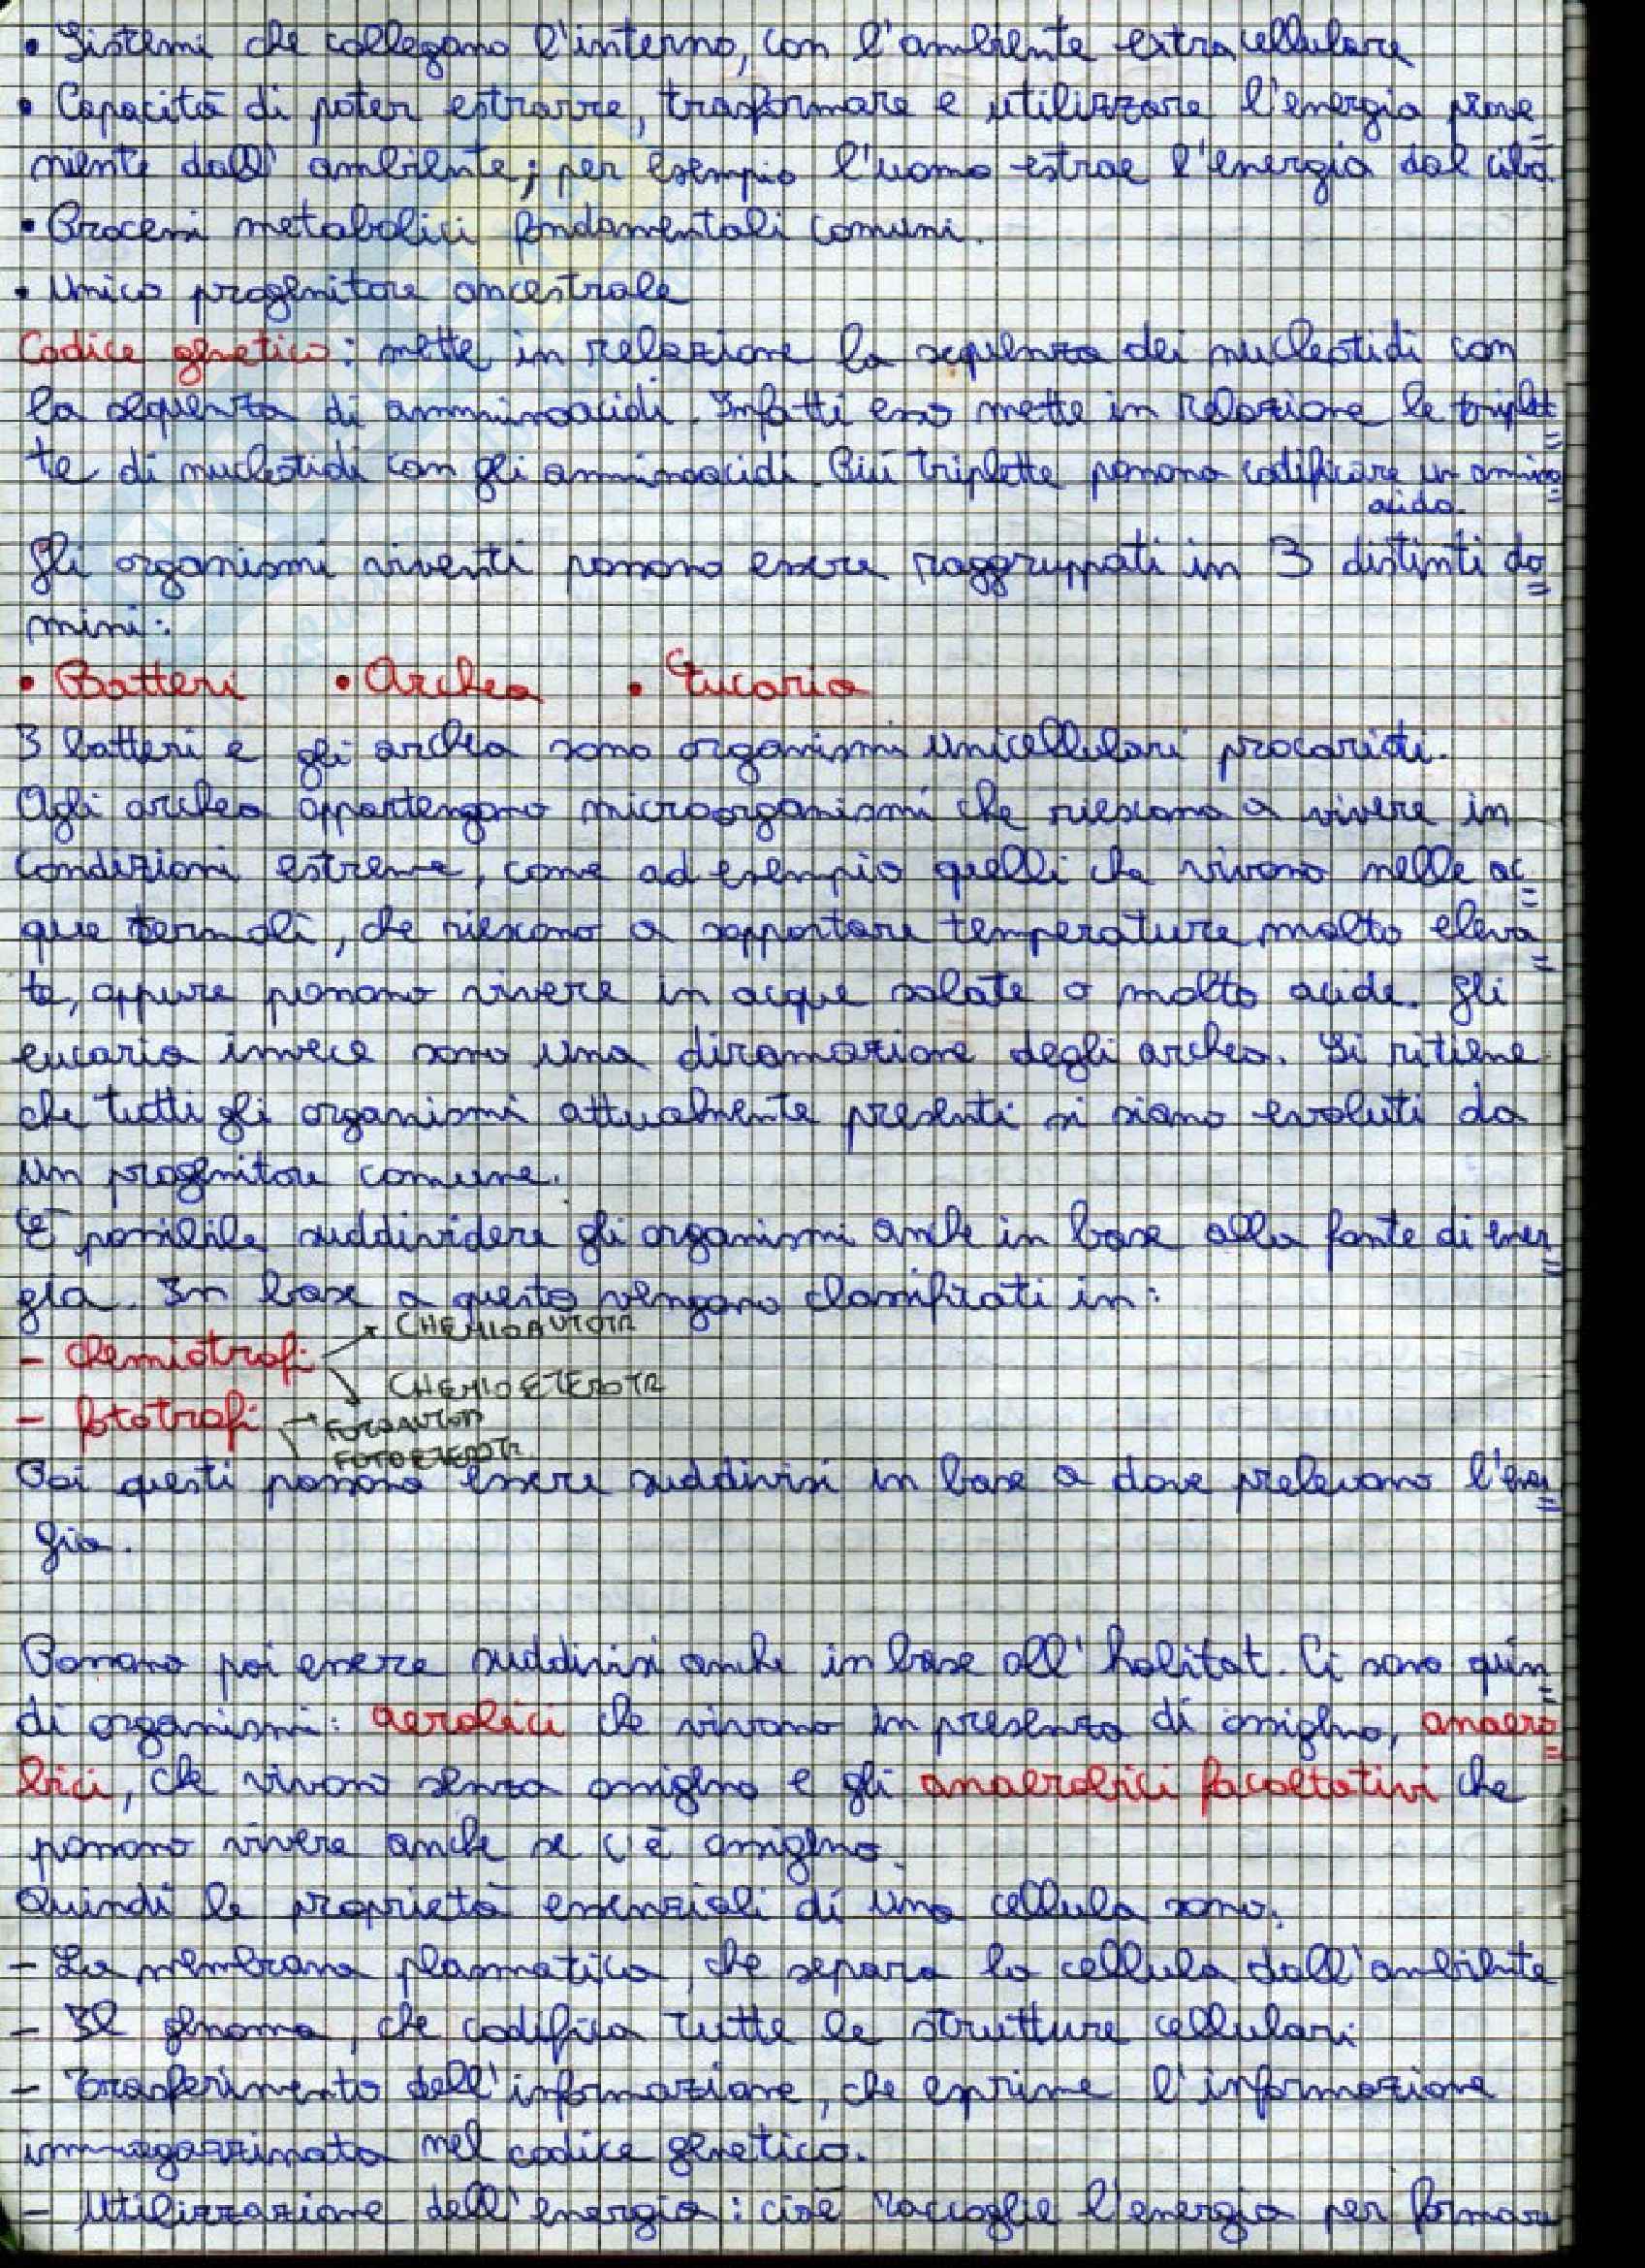 • Sistemi che collegano l'interno, con l'ambiente extracellulare
• Capacità di poter estrarre, trasformare e utilizzare l'energia prove=
niente dall'ambiente; per esempio l'uomo estrae l'energia dal cibo.
• Processi metabolici fondamentali comuni.
• Unico progenitore ancestrale
Codice genetico: mette in relazione la sequenza dei nucleotidi con
la sequenza di amminoacidi. Infatti esso mette in relazione le triplet=
te di nucleotidi con gli amminoacidi. Più triplette possono codificare un amino=
acido.
Gli organismi viventi possono essere raggruppati in 3 distinti do=
mini:
• Batteri • Archea • Eucaria
I batteri e gli archea sono organismi unicellulari procarioti.
Agli archea appartengono microorganismi che riescono a vivere in
condizioni estreme, come ad esempio quelli che vivono nelle ac=
que termali, che riescono a sopportare temperature molto eleva=
te, oppure possono vivere in acque salate o molto acide. Gli
eucaria invece sono una diramazione degli archea. Si ritiene
che tutti gli organismi attualmente presenti si siano evoluti da
un progenitore comune.
E' possibile suddividere gli organismi anche in base alla fonte di ener=
gia. In base a questo vengono classificati in:
CHEMIOAUTOTR
- chemiotrofi
CHEMIOETEROTR
- fototrofi
FOTOAUTOTR
FOTOETEROTR
Poi questi possono essere suddivisi in base a dove prelevano l'ener=
gia.
Possono poi essere suddivisi anche in base all'habitat. Ci sono quin=
di organismi: aerobici che vivono in presenza di ossigeno, anaero=
bici, che vivono senza ossigeno e gli anaerobici facoltativi che
possono vivere anche se c'è ossigeno.
Quindi le proprietà essenziali di una cellula sono:
- La membrana plasmatica, che separa la cellula dall'ambiente
- Il genoma, che codifica tutte le strutture cellulari
- Trasferimento dell'informazione, che esprime l'informazione
immagazzinata nel codice genetico.
- Utilizzazione dell'energia: cioè raccoglie l'energia per formare